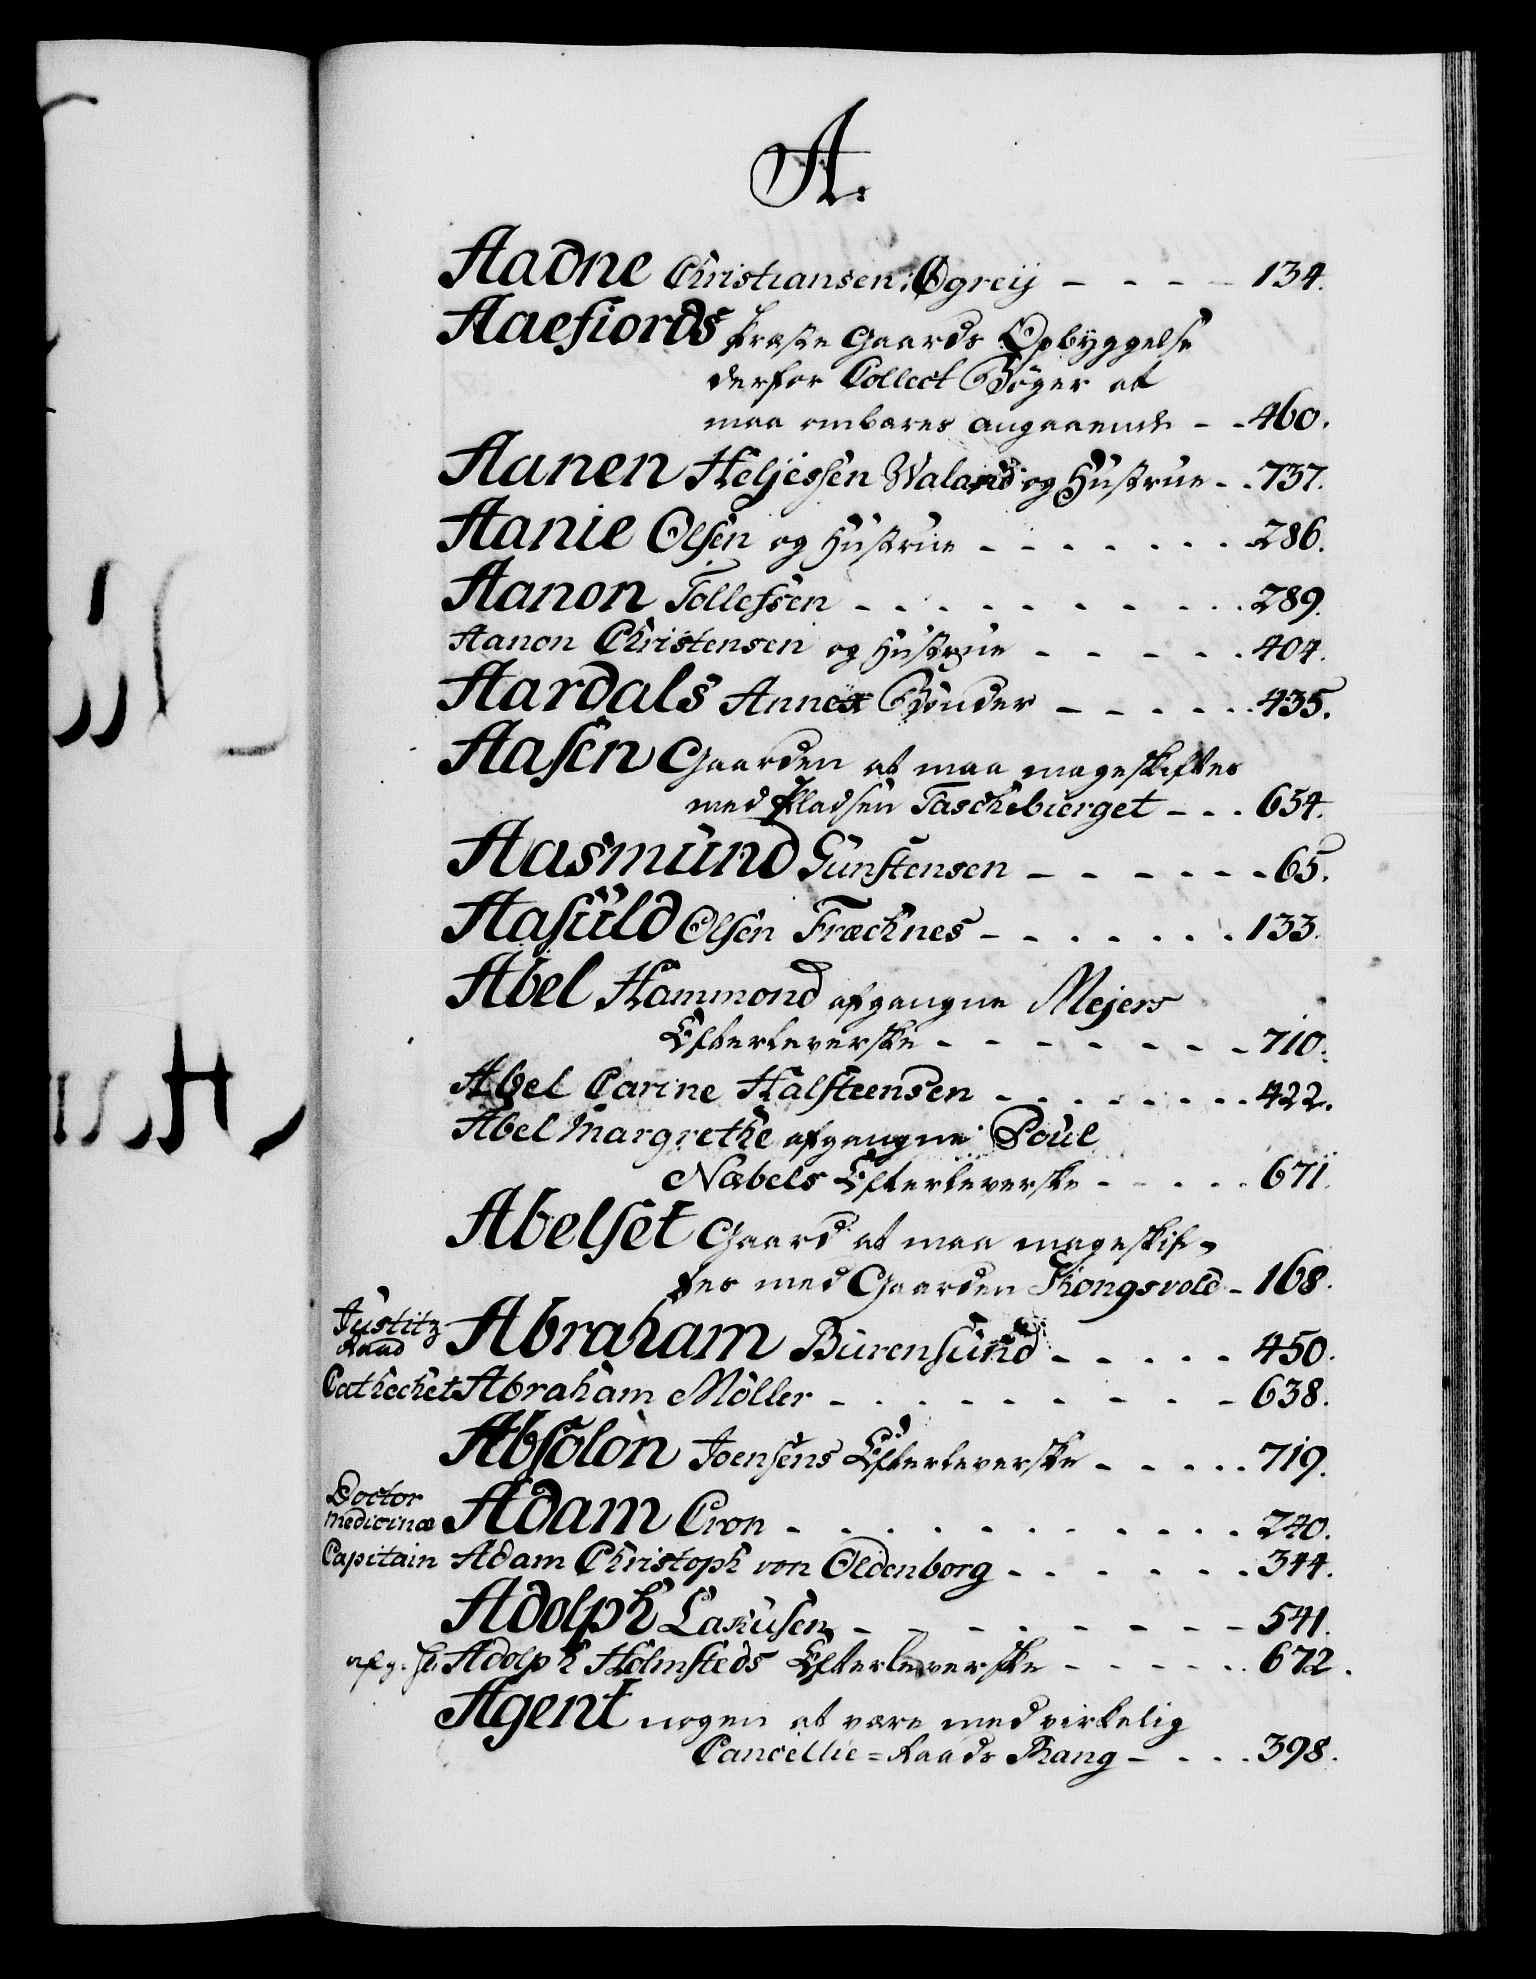 A.
Aadne Christiansen Øgreij - - - - 134.
Aaefiords Præste Gaards Opbyggelse
derfor Collect Bøger at
maa ombæres angaaende - - 460.
Aanen Heljessen Waland og Hustrue - - 737.
Aanie Olsen og Hustrue - - - - - - - 286.
Aanon Tollefssen - - - - - - - - - - 289.
Aanon Christensen og Hustrue - - - - - 404.
Aardals Annex Bønder - - - - - - 435.
Aasen Gaarden at maa mageskiftes
med Pladsen Taschebierget - - - 654.
Aasmund Gunstensen - - - - - - - 65.
Aasuld Olsen Fræchnes - - - - - - - 133.
Abel Hammond afgangne Mejers
Efterleverske - - - - - - - - 710.
Abel Carine Halsteensen - - - - - - - - 422.
Abel Margrethe afgangne Poul
Næbels Efterleverske - - - - - 671.
Abelset Gaard at maa mageskif-
tes med Gaarden Kongsvold - 168.
Justitz
Raad Abraham Burensund - - - - - 450.
Cathechet Abraham Möller - - - - - - - - - 638.
Absolon Joensens Efterleverske - - - - - 719.
Doctor
Medicinæ Adam Cron - - - - - - - - - - 240.
Capitain Adam Christoph von Oldenborg - - - - - - 344.
Adolph Larusen - - - - - - - - 541.
afg. Hr. Adolph Holmsteds Efterleverske - - - - - 672.
Agent nogen at være med virkelig
Cancellie=Raads Rang - - - - 398.